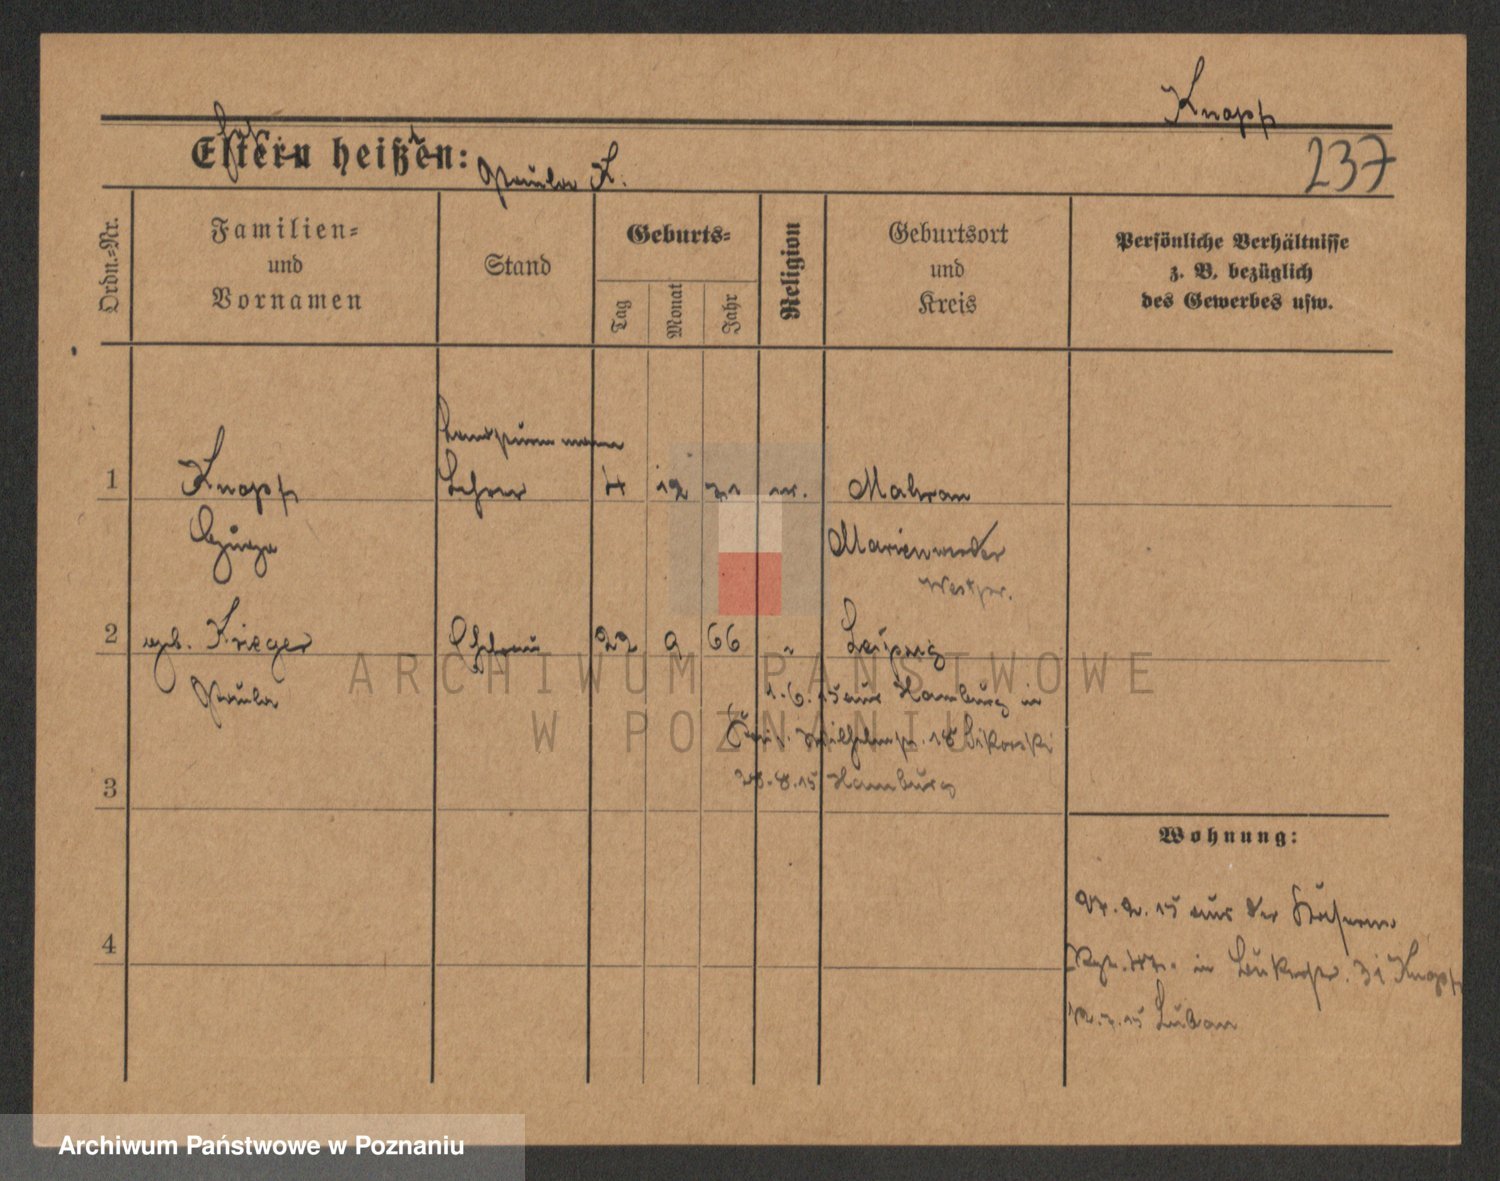 Knapp
237
Eltern heißen:
Paula K.
Ordn.-Nr.
Familien-
und
Vornamen
Stand
Geburts-
Tag
Monat
Jahr
Religion
Geburtsort
und
Kreis
Persönliche Verhältnisse
z. B. bezüglich
des Gewerbes usw.
1
Knapp
Landsturmmann
Lehrer
4
12
71
ev.
Mahren
Marienwerder
Westpr.
2
geb. Krieger
Ehefrau
22
9
66
"
Leipzig
Paula
1.6.15 aus Hamburg in
Wilhelmstr. 18 Sikorski
28.8.15 Hamburg
3
Wohnung:
2.15 aus der Kaserne
in 31 Knapp
15 Luban
4
ARCHIWUM PAŃSTWOWE
W POZNANIU
Archiwum Państwowe w Poznaniu